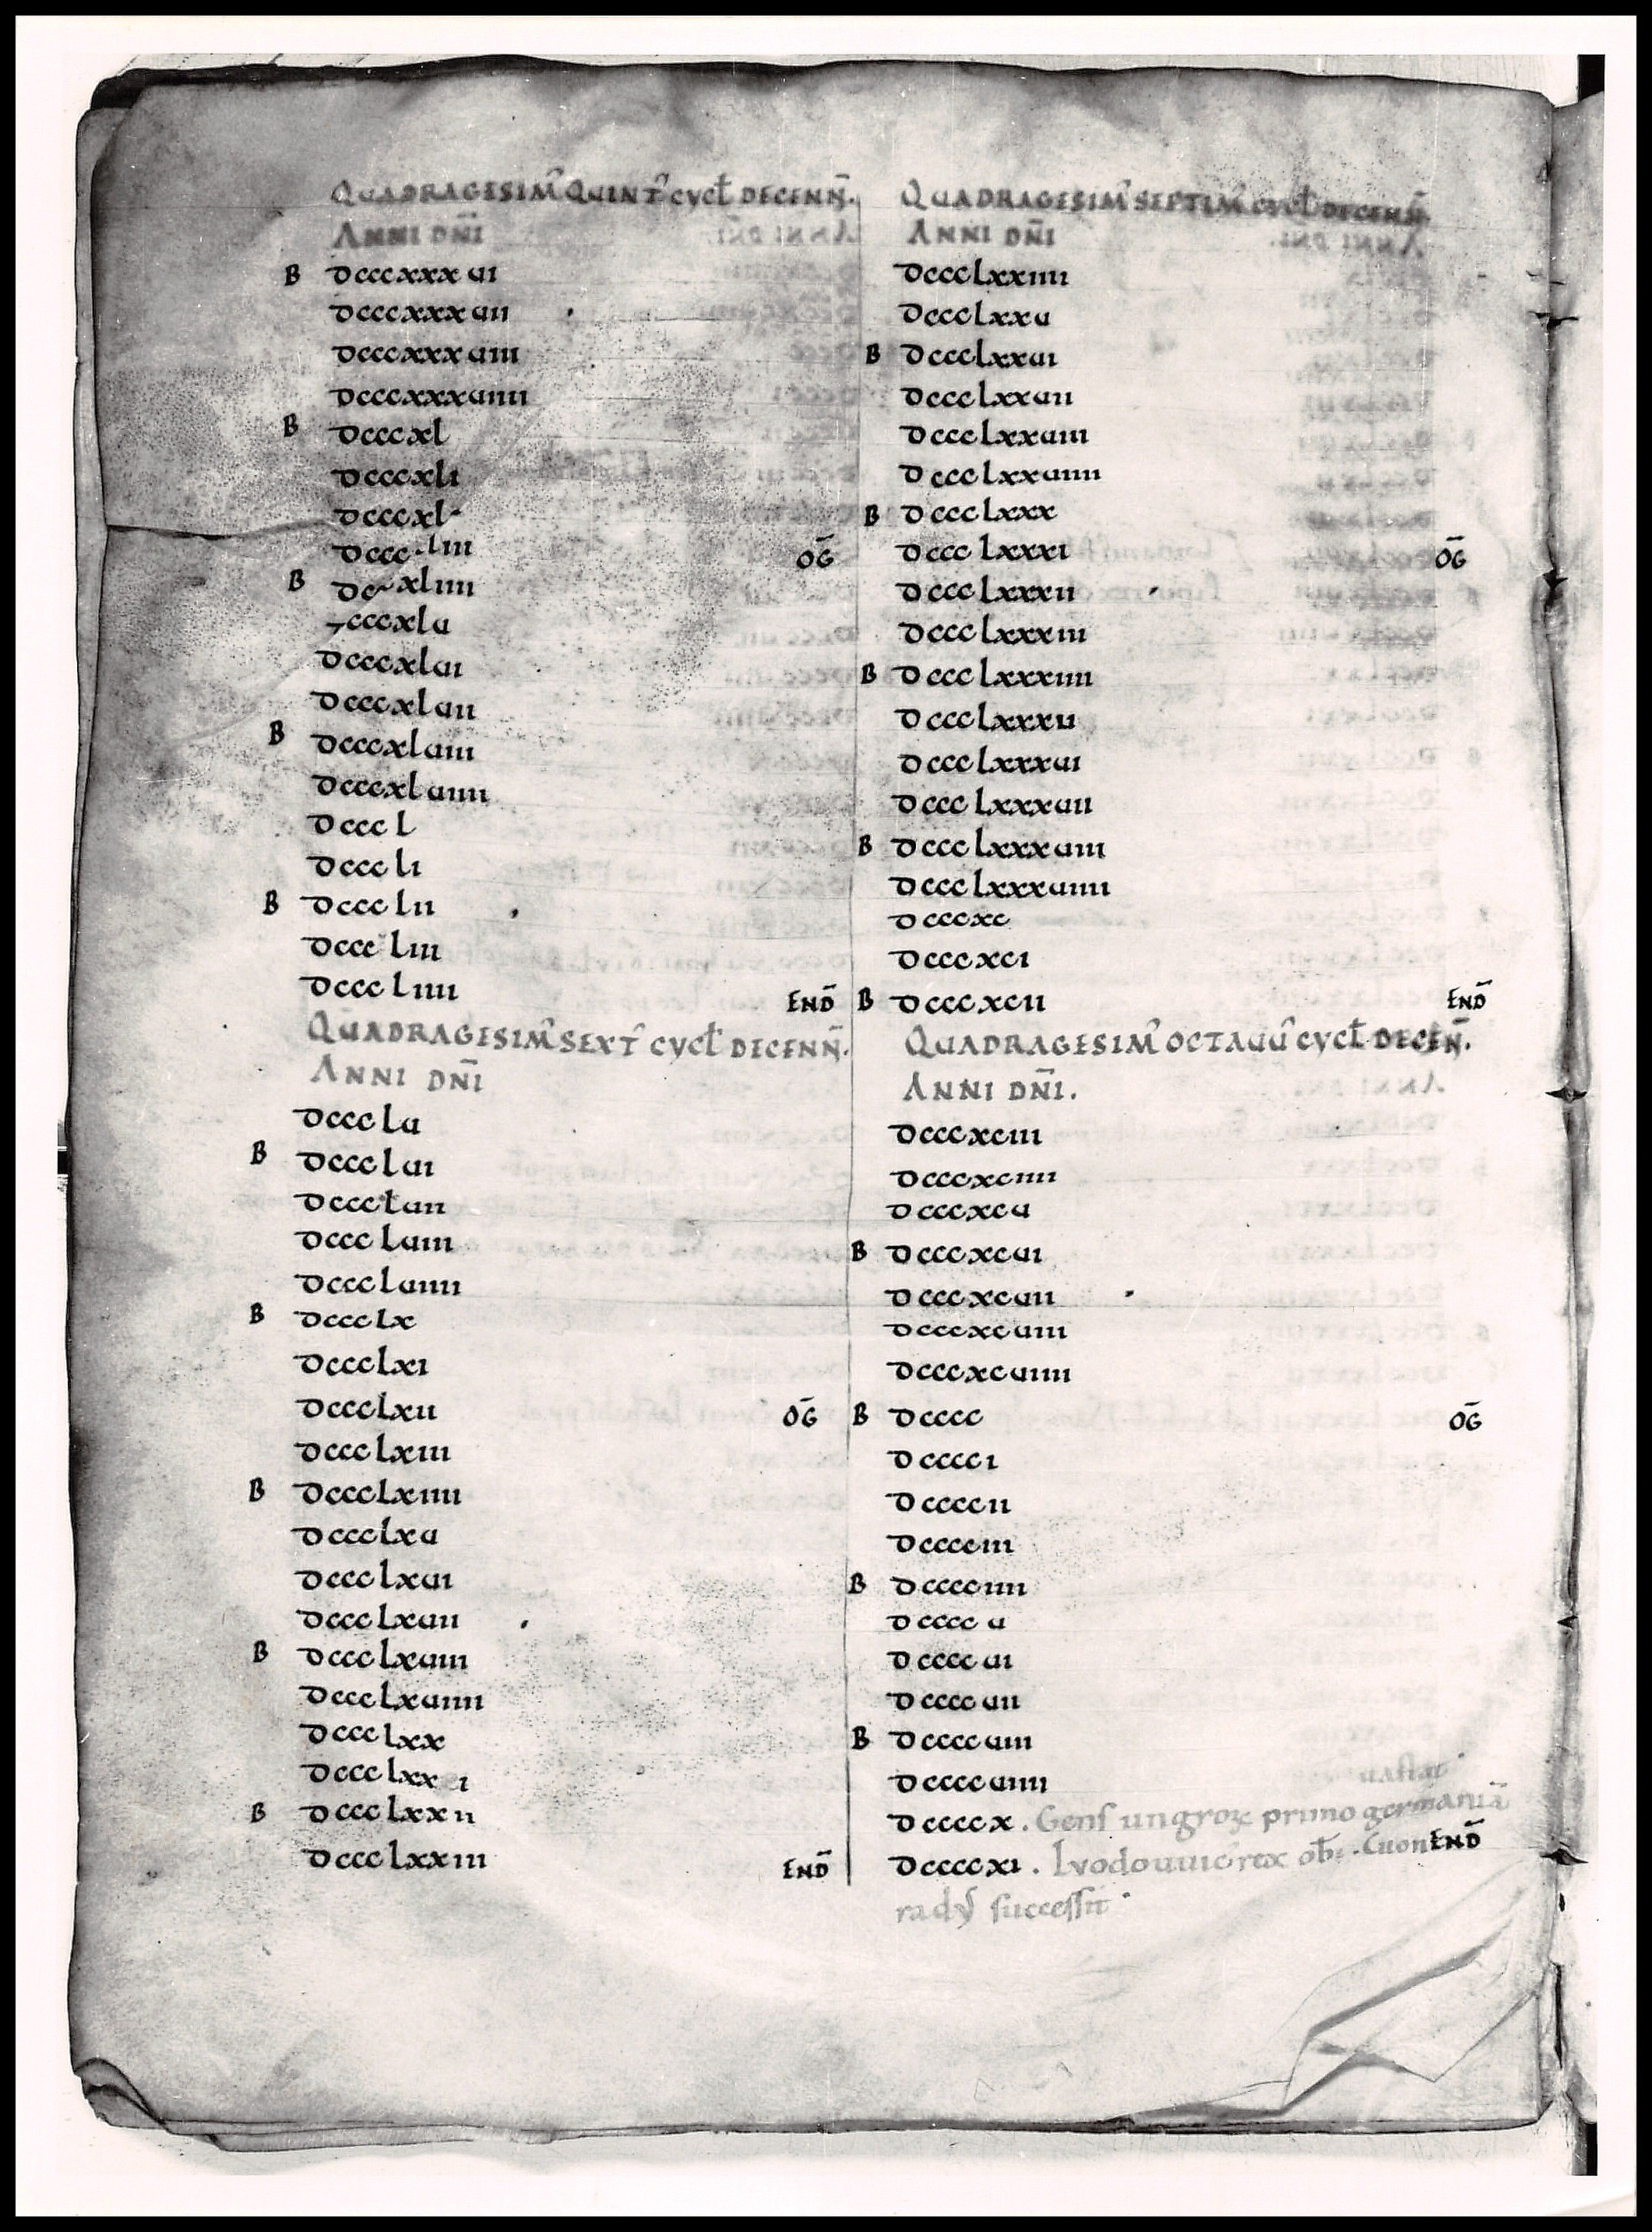 QUADRAGESIM᾿ QUINT᾿ CYCŁ DECENN̄.
ANNI DN̄I
B dcccxxxui
dcccxxxuii
dcccxxxuiii
dcccxxxuiiii
B dcccxl
dcccxli
dcccxl
dccc liii OḠ
B dc xliiii
cccxlu
dcccxlui
dcccxluii
B dcccxluiii
dcccxluiiii
dcccl
dcccli
B dccclii
dcccliii
dcccliiii EN̄D
QUADRAGESIM᾿ SEXT᾿ CYCŁ DECENN̄.
ANNI DN̄I
dccclu
B dccclui
dcccluii
dcccluiii
dcccluiiii
B dccclx
dccclxi
dccclxii OḠ
dccclxiii
B dccclxiiii
dccclxu
dccclxui
dccclxuii
B dccclxuiii
dccclxuiiii
dccclxx
dccclxx i
B dccclxxii
dccclxxiii EN̄D
QUADRAGESIM᾿ SEPTIM᾿ CYCŁ DECENN̄.
ANNI DN̄I
dccclxxiiii
dccclxxu
B dccclxxui
dccclxxuii
dccclxxuiii
dccclxxuiiii
B dccclxxx
dccclxxxi OḠ
dccclxxxii
dccclxxxiii
B dccclxxxiiii
dccclxxxu
dccclxxxui
dccclxxxuii
B dccclxxxuiii
dccclxxxuiiii
dcccxc
dcccxci
B dcccxcii EN̄D
QUADRAGESIM᾿ OCTAUU᾿ CYCŁ DECEN̄.
ANNI DN̄I.
dcccxciii
dcccxciiii
dcccxcu
B dcccxcui
dcccxcuii
dcccxcuiii
dcccxcuiiii
B dcccc OḠ
dcccci
dccccii
dcccciii
B dcccciiii
dccccu
dccccui
dccccuii
B dccccuiii
dccccuiiii
uastat.
dccccx. Gens ungroꝝ primo germaniā
dccccxi. Lvodouuic᾿ rex ob̄. Cuon EN̄D
rad᾿ successit.